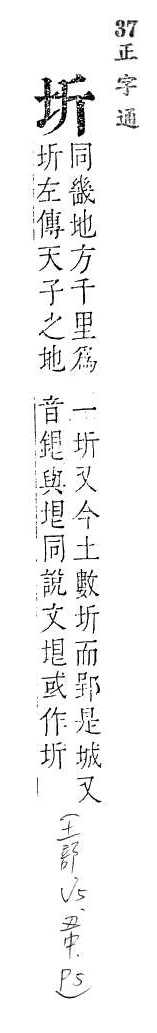 37 正字通
圻
同畿地方千里爲
圻左傳天子之地
一圻又今土數圻而郢是城又
音銀與垠同說文垠或作圻
(土部 V5, 丑中. P5)